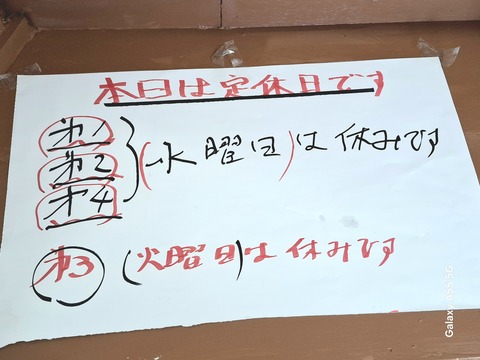 本日は定休日です
才1
才2
才4
(水曜日)は休みです
才3 (火曜日)は休みです